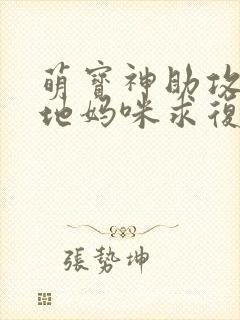 萌寶神助攻
地媽咪求復
張勢坤